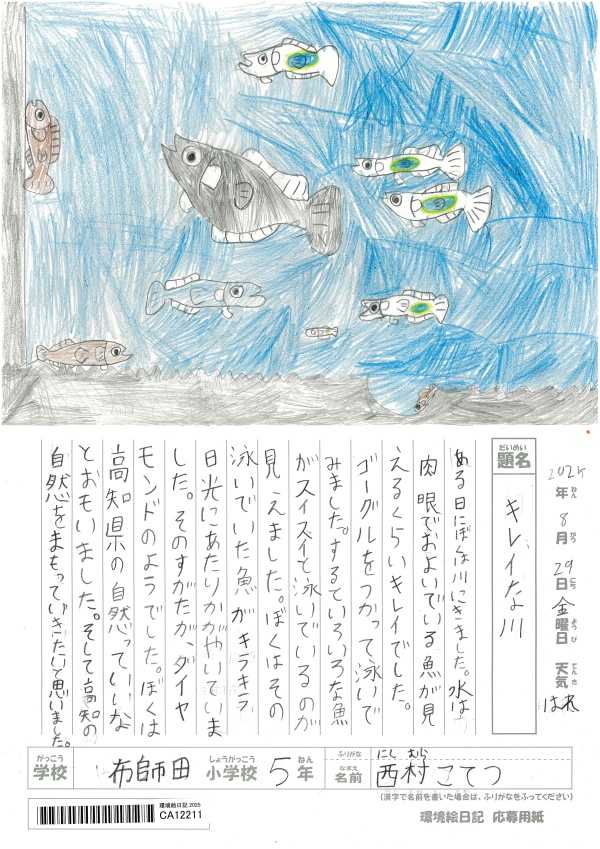 2025年ねん8月がつ29日にち金曜日ようび 天気てんき はれ
題名だいめい キレイな川
ある日にぼくは川にきました。水は
肉眼でおよいでいる魚が見
えるくらいキレイでした。
ゴーグルをつかって泳いで
みました。するといろいろな魚
がスイスイと泳いでいるのが
見えました。ぼくはその
泳いでいた魚がキラキラ
日光にあたりかがやいていま
した。そのすがたが、ダイヤ
モンドのようでした。ぼくは
高知県の自然っていいな
とおもいました。そして高知の
自然をまもっていきたいと思いました。
がっこう しょうがっこう ねん ふりがな にし むら
学校 布師田 小学校 5年 なまえ 名前 西村こてつ
(漢字で名前を書いた場合は、ふりがなをふってください)
環境絵日記 2025
CA12211
環境絵日記 応募用紙